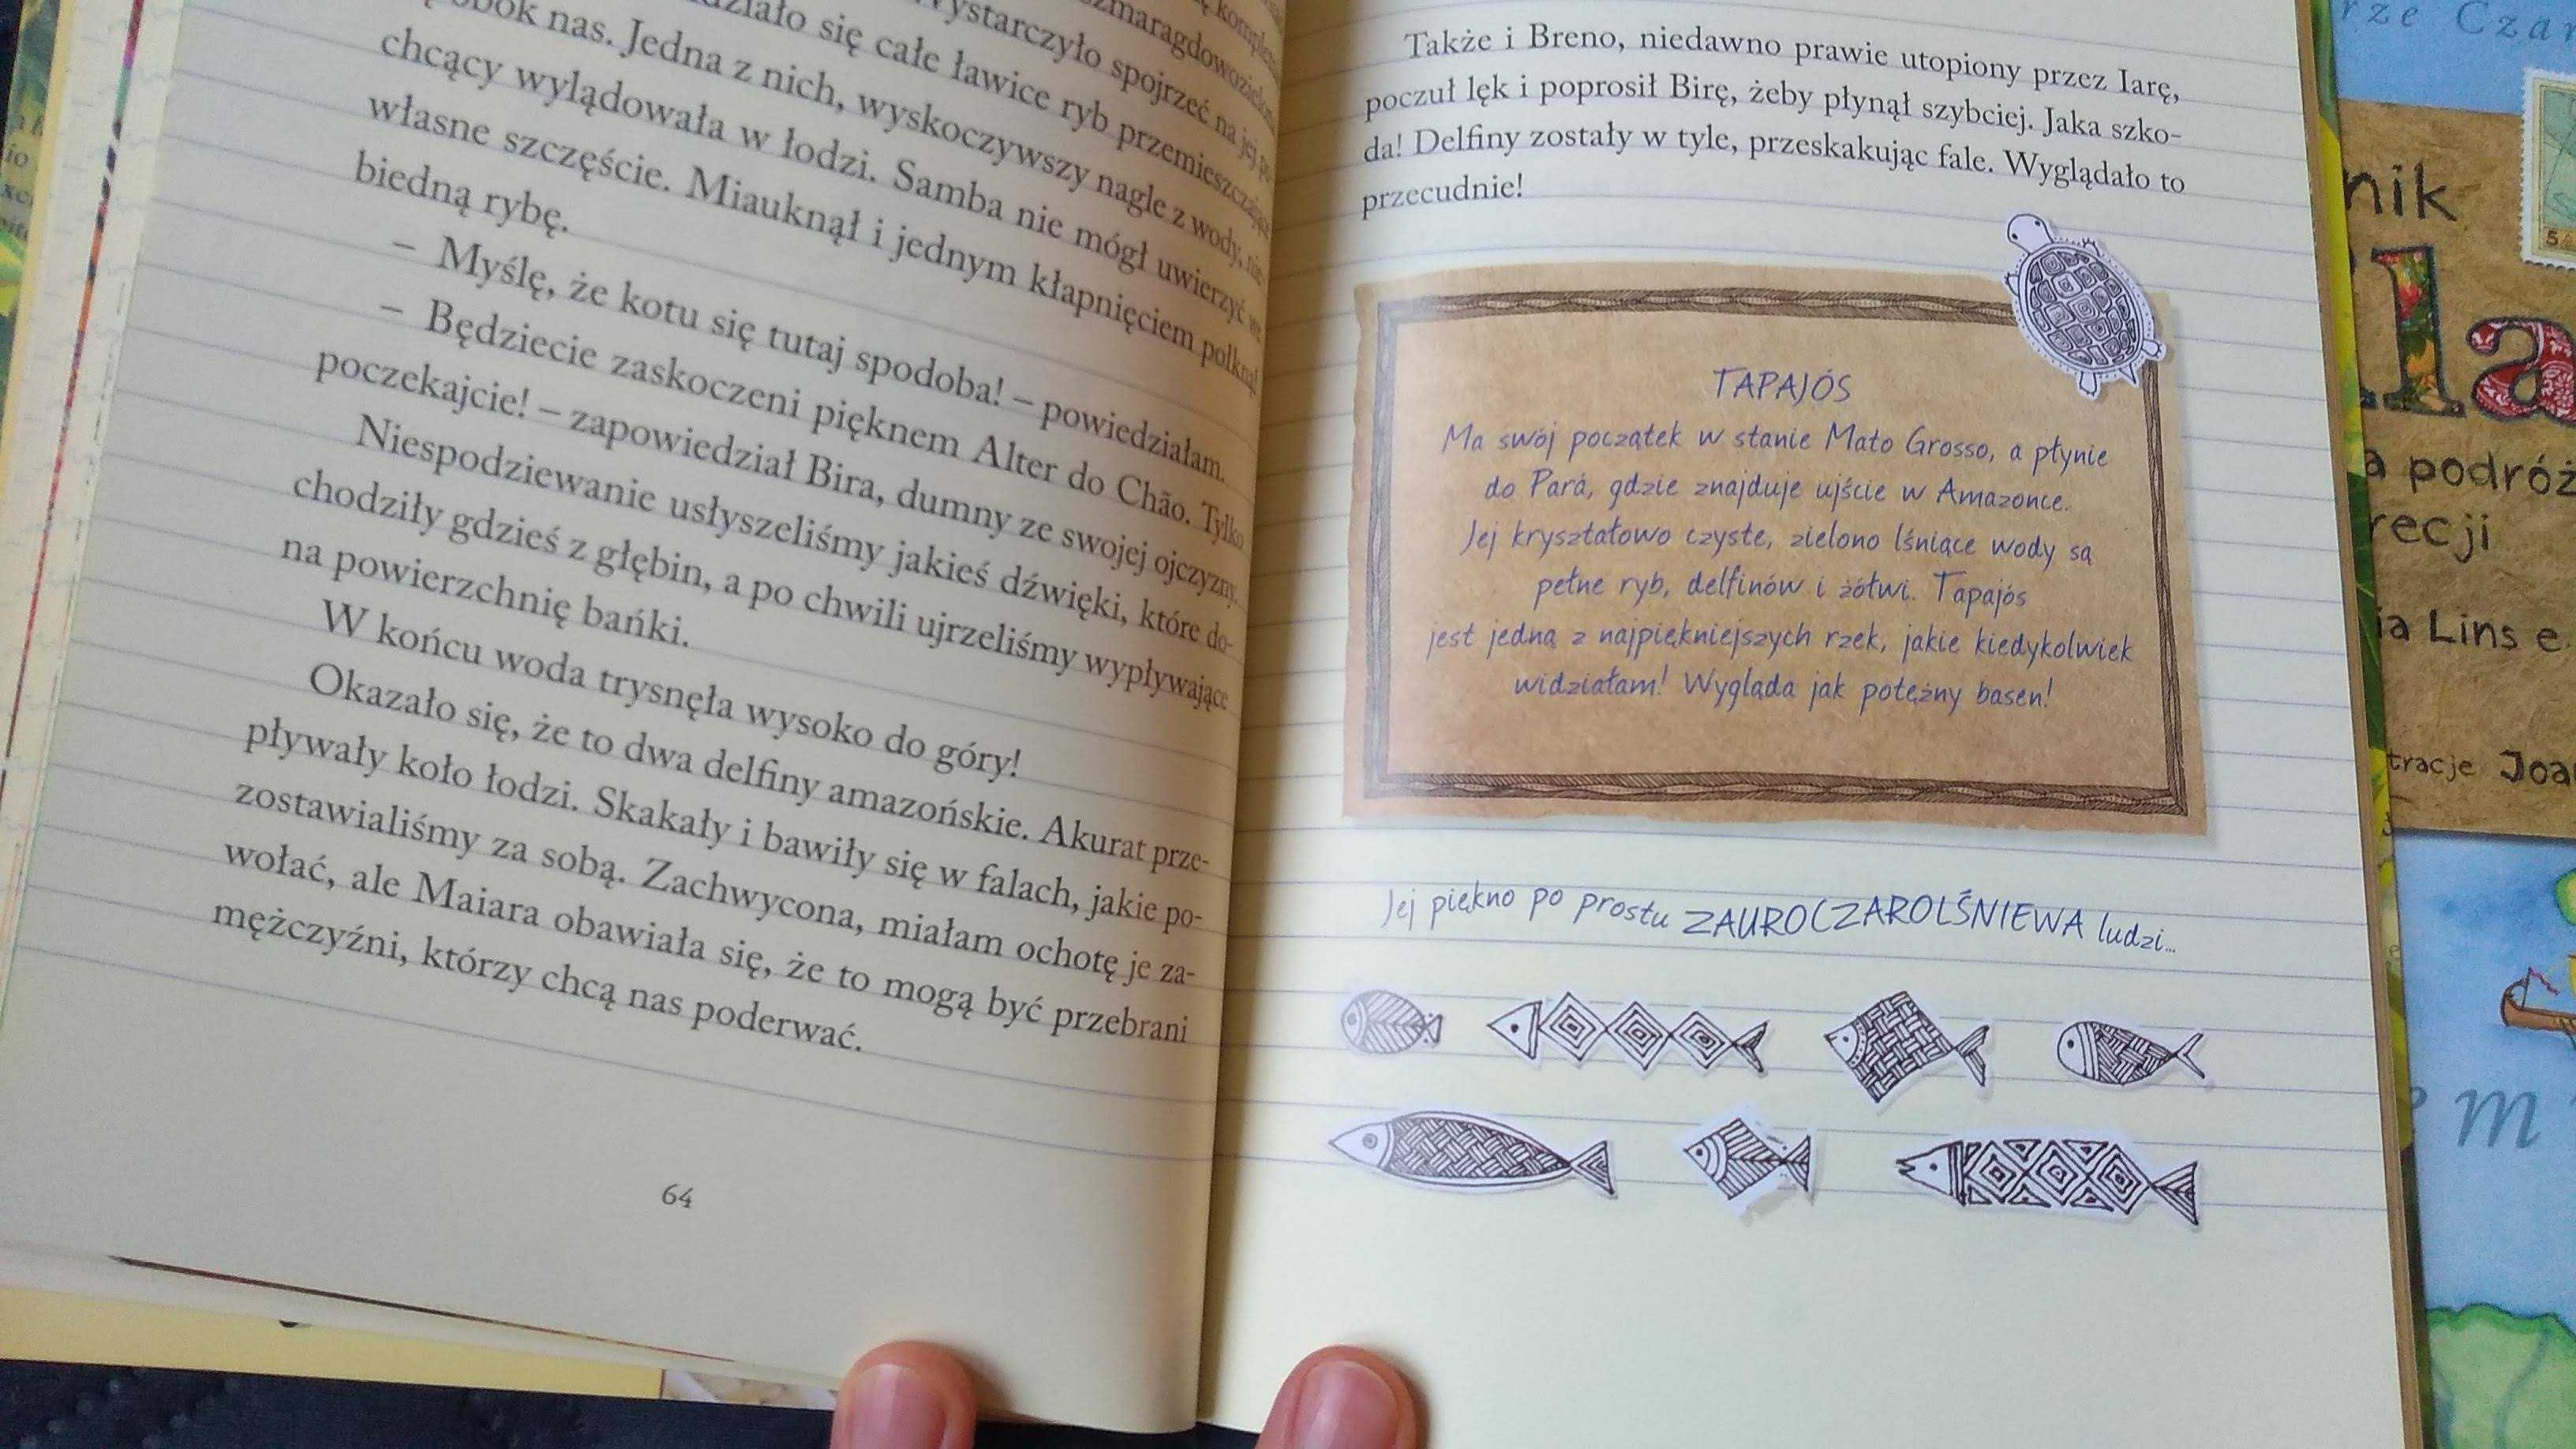 kompletn
szmaragdowozielon
Wystarczyło spojrzeć na jej po
działo się całe ławice ryb przemieszczające
obok nas. Jedna z nich, wyskoczywszy nagle z wody, nie-
chcący wylądowała w łodzi. Samba nie mógł uwierzyć we
własne szczęście. Miauknął i jednym kłapnięciem połknął
biedną rybę.
– Myślę, że kotu się tutaj spodoba! – powiedziałam.
– Będziecie zaskoczeni pięknem Alter do Chão. Tylko
poczekajcie! – zapowiedział Bira, dumny ze swojej ojczyzny.
Niespodziewanie usłyszeliśmy jakieś dźwięki, które do-
chodziły gdzieś z głębin, a po chwili ujrzeliśmy wypływające
na powierzchnię bańki.
W końcu woda trysnęła wysoko do góry!
Okazało się, że to dwa delfiny amazońskie. Akurat prze-
pływały koło łodzi. Skakały i bawiły się w falach, jakie po-
zostawialiśmy za sobą. Zachwycona, miałam ochotę je za-
wołać, ale Maiara obawiała się, że to mogą być przebrani
mężczyźni, którzy chcą nas poderwać.
64
Także i Breno, niedawno prawie utopiony przez Iarę,
poczuł lęk i poprosił Birę, żeby płynął szybciej. Jaka szko-
da! Delfiny zostały w tyle, przeskakując fale. Wyglądało to
przecudnie!
TAPAJÓS
Ma swój początek w stanie Mato Grosso, a płynie
do Pará, gdzie znajduje ujście w Amazonce.
Jej kryształowo czyste, zielono lśniące wody są
pełne ryb, delfinów i żółwi. Tapajós
jest jedną z najpiękniejszych rzek, jakie kiedykolwiek
widziałam! Wygląda jak potężny basen!
Jej piękno po prostu ZAUROCZAROLŚNIEWA ludzi...
rze Czar
nik
la
a podróż
recji
ia Lins e
tracje Joa
m